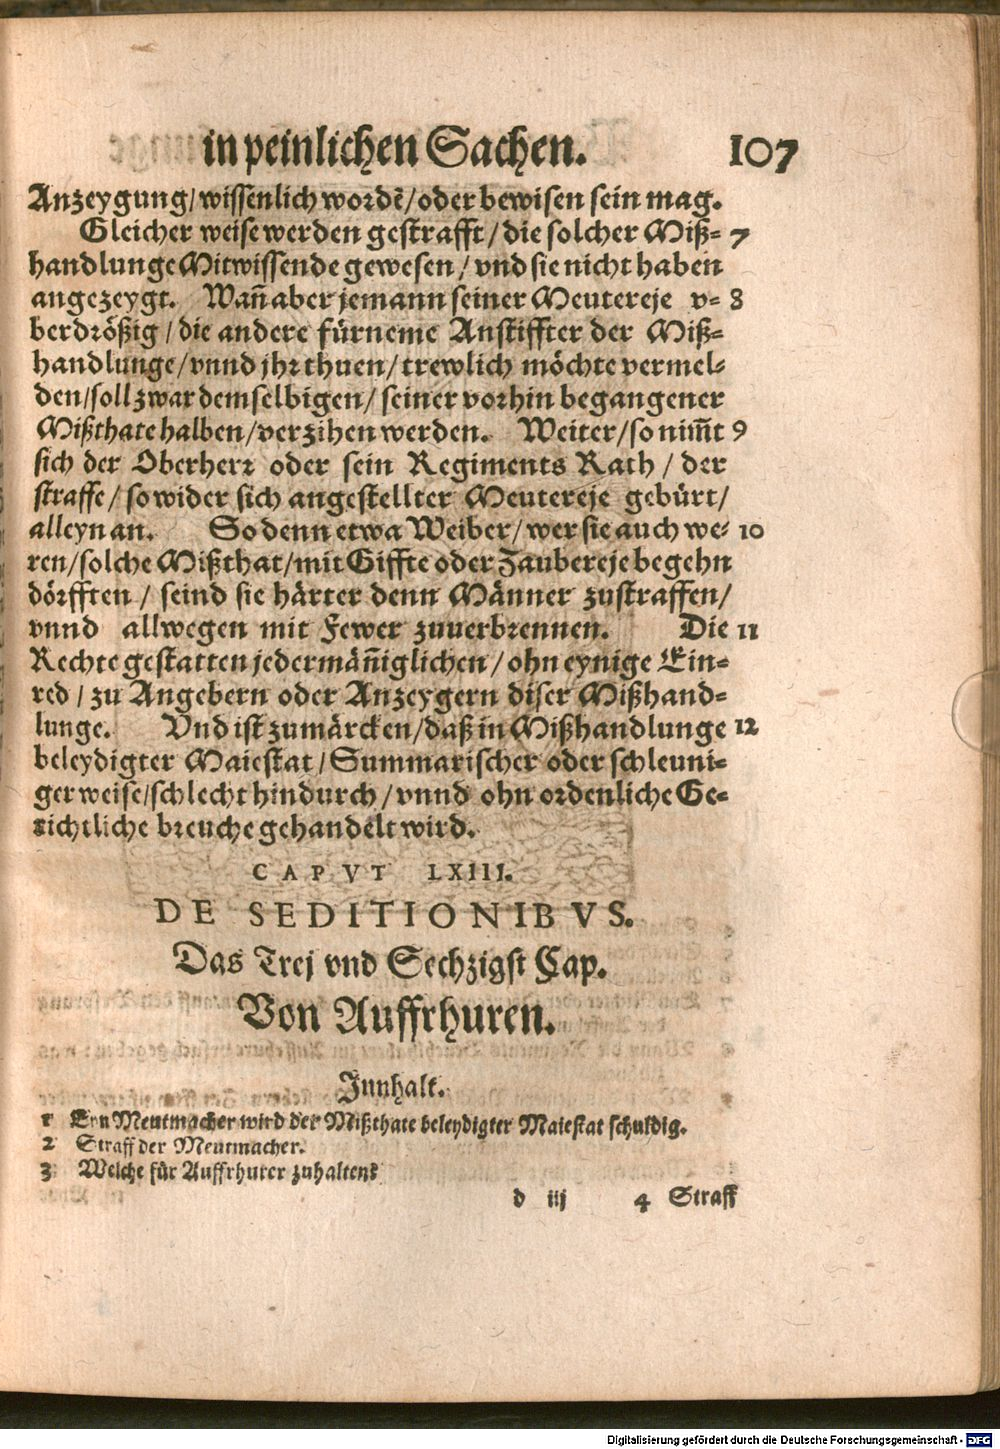 in peinlichen Sachen. 107
Anzeygung/wissenlich wordẽ/oder bewisen sein mag.
Gleicher weise werden gestrafft/die solcher Miß= 7
handlunge Mitwissende gewesen/vnd sie nicht haben
angezeygt. Wañ aber jemann seiner Meutereje v= 8
berdrößig/die andere fürneme Anstiffter der Miß=
handlunge/vnnd jhr thuen/trewlich möchte vermel=
den/soll zwar demselbigen/seiner vorhin begangener
Mißthate halben/verzihen werden. Weiter/so nim̃t 9
sich der Oberherr oder sein Regiments Rath/der
straffe/so wider sich angestellter Meutereje gebürt/
alleyn an. So denn etwa Weiber/wer sie auch we= 10
ren/solche Mißthat/mit Giffte oder Zaubereje begehn
dörfften/seind sie härter denn Männer zustraffen/
vnnd allwegen mit Fewer zuuerbrennen. Die 11
Rechte gestatten jedermäñiglichen/ohn eynige Ein=
red/zu Angebern oder Anzeygern diser Mißhand=
lunge. Vnd ist zumärcken/daß in Mißhandlunge 12
beleydigter Maiestat/Summarischer oder schleuni=
ger weise/schlecht hindurch/vnnd ohn ordenliche Ge=
richtliche breuche gehandelt wird.
CAPVT LXIII.
DE SEDITIONIBVS.
Das Trej vnd Sechzigst Cap.
Von Auffrhuren.
Innhalt.
1 Eyn Meutmacher wird der Mißthate beleydigter Maiestat schuldig.
2 Straff der Meutmacher.
3 Welche für Auffrhurer zuhalten?
d iij 4 Straff
Digitalisierung gefördert durch die Deutsche Forschungsgemeinschaft - DFG